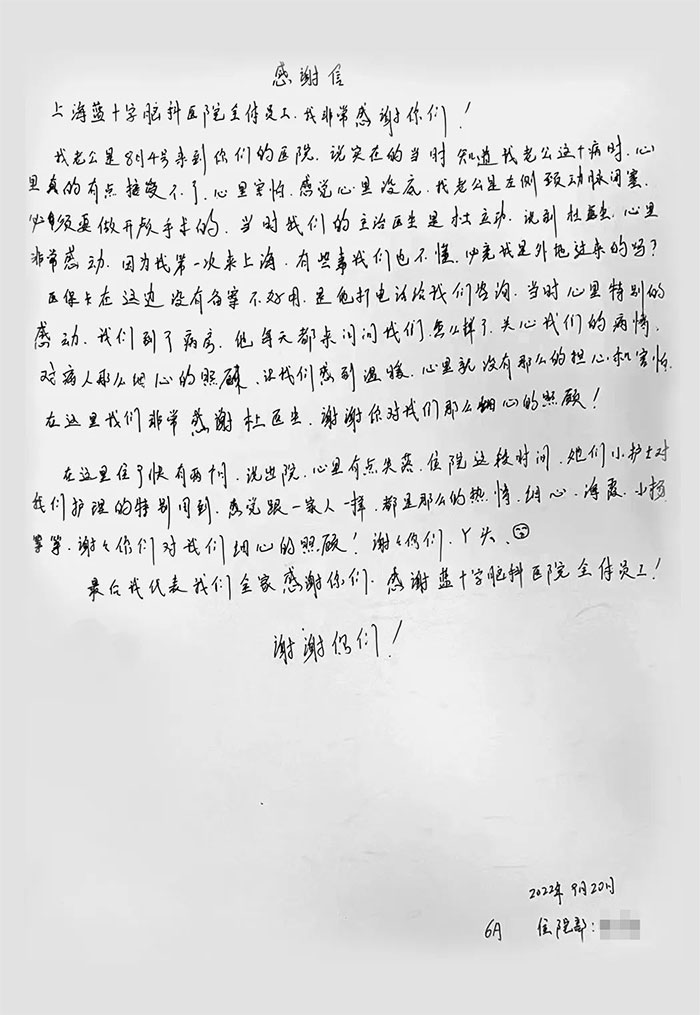 感谢信
上海蓝十字脑科医院全体员工、我非常感谢你们！
我老公是8月4号来到你们的医院、说实在的当时知道我老公这个病时、心
里真的有点接受不了、心里害怕、感觉心里没底、我老公是左侧颈动脉闭塞、
必须要做开颅手术的、当时我们的主治医生是杜立动、说到杜医生、心里
非常感动、因为我第一次来上海、有些事我们也不懂、必竟我是外地过来的吗？
医保卡在这边没有备案不好用、是他打电话给我们咨询、当时心里特别的
感动、我们到了病房、他每天都来问问我们、怎么样了、关心我们的病情、
对病人那么细心的照顾、让我们感到温暖、心里就没有那么的担心和害怕、
在这里我们非常感谢杜医生、谢谢你对我们那么细心的照顾！
在这里住了快有两个月、说出院、心里有点失落、住院这段时间、她们小护士对
我们护理的特别周到、感觉跟一家人一样、都是那么的热情、细心、海霞、小杨
等等、谢谢你们对我们细心的照顾！谢谢你们、丫头、
最后我代表我们全家感谢你们、感谢蓝十字脑科医院全体员工！
谢谢你们！
2022年9月20日
6A 住院部：